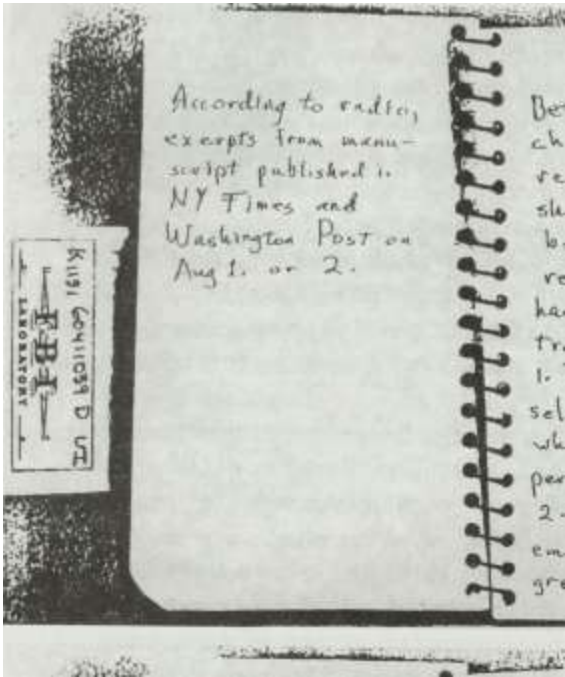 According to radio,
exerpts from manu-
script published i.
NY Times and
Washington Post on
Aug 1. or 2.
FBI
LABORATORY
D
ch
re
b
re
1.
sel
wh
per
2.
em
gre